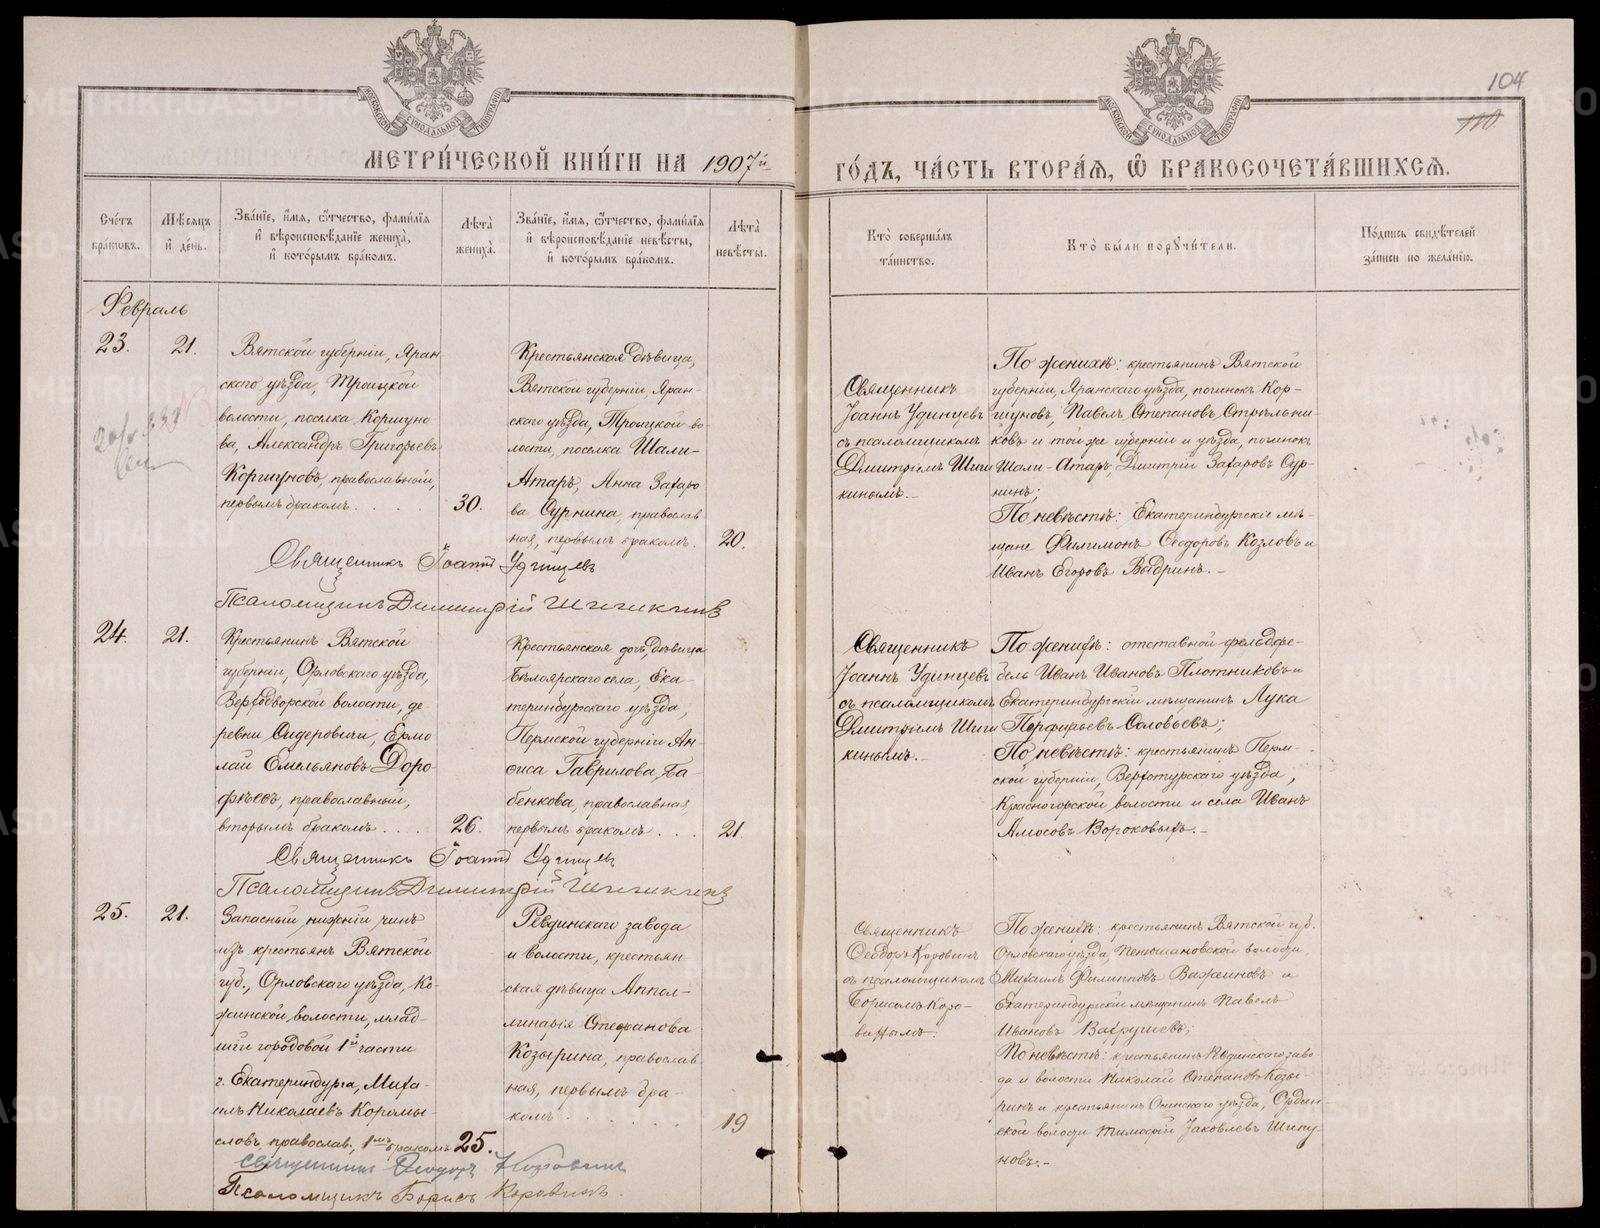 104
110
МЕТРИ́ЧЕСКОЙ КНИ́ГИ НА 1907й
ГО́ДЪ, ЧА́СТЬ ВТОРА́Я, Ѡ БРАКОСОЧЕТА́ВШИХСЯ.
Сче́тъ браковъ.
Мѣсяцъ и де́нь.
Зва́нїе, и́мя, ѻ́тчество, фами́лїя и вѣроисповѣ́данїе жениха̀, и кото́рымъ бра́комъ.
Лѣта̀ жениха̀.
Зва́нїе, и́мя, ѻ́тчество, фами́лїя и вѣроисповѣ́данїе невѣ́сты, и кото́рымъ бра́комъ.
Лѣта̀ невѣ́сты.
Кто̀ соверша́лъ та́инство.
Кто̀ бы́ли пору́чи́тели.
По́дпись свидѣ́телей за́писи по жела́нїю.
Февраль
23.
21.
Вятской губерніи, Яран-
скаго уѣзда, Троицкой
волости, поселка Коршуно
ва, Александръ Григорьевъ
Коршуновъ, православный,
первымъ бракомъ . . . . .
30.
Крестьянская дѣвица,
Вятской губерніи, Яран-
скаго уѣзда, Троицкой во
лости, поселка Шали-
Атаръ, Анна Захаро
ва Сурнина, православ
ная, первымъ бракомъ.
20.
Священникъ
Іоаннъ Удинцевъ
съ псаломщикомъ
Дмитріемъ Шиши
кинымъ.-
По женихѣ: крестьянинъ Вятской
губерніи, Яранскаго уѣзда, починокъ Кор-
шуновъ, Павелъ Степановъ Стрѣльни-
ковъ и той же губерніи и уѣзда, починокъ
Шали-Атаръ Дмитрій Захаровъ Сур-
нинъ;
По невѣстѣ: Екатеринбургскіе мѣ-
щане Филимонъ Ѳеодоровъ Козловъ и
Иванъ Егоровъ Выдринъ.-
Священникъ Іоаннъ Удинцевъ
Псаломщикъ Димитрій Шишкинъ
24.
21.
Крестьянинъ Вятской
губерніи, Орловскаго уѣзда,
Верходворской волости, де
ревни Сидоровичи, Ермо
лай Емельяновъ Доро-
фѣевъ, православный,
вторымъ бракомъ . . . .
26.
Крестьянская дочь, дѣвица
Бѣлоярскаго села, Ека
теринбургскаго уѣзда,
Пермской губерніи Ан-
фиса Гаврилова Ба-
бенкова, православная
первымъ бракомъ . . .
21.
Священникъ
Іоаннъ Удинцевъ
съ псаломщикомъ
Дмитріемъ Шиши
кинымъ.-
По женихѣ: отставной фельдфе-
бель Иванъ Ивановъ Плотниковъ и
Екатеринбургскій мѣщанинъ Лука
Порфирьевъ Соловьевъ;
По невѣстѣ: крестьянинъ Перм-
ской губерніи, Верхотурскаго уѣзда,
Красногорской волости и села Иванъ
Амосовъ Вороковыхъ.-
Священникъ Іоаннъ Удинцевъ
Псаломщикъ Димитрій Шишкинъ
25.
21.
Запасный нижній чинъ
изъ крестьянъ Вятской
губ., Орловскаго уѣзда, Ко-
жинской волости, млад-
шій городовой 1й части
г. Екатеринбурга, Миха-
илъ Николаевъ Коромы-
словъ, православ., 1мъ бракомъ
25.
Ревдинскаго завода
и волости, крестьян-
ская дѣвица Аппол-
линарія Стефанова
Козырина, православ-
ная, первымъ бра-
комъ . . . . . .
19
Священникъ
Ѳеодоръ Коровинъ
съ псаломщикомъ
Борисомъ Коро-
винымъ.
По женихѣ: крестьянинъ Вятской губ.
Орловскаго уѣзда, волости,
Михаилъ Филипповъ Важиновъ и
Екатеринбургскій мѣщанинъ Павелъ
Ивановъ Вахрушевъ;
По невѣстѣ: крестьянинъ Ревдинскаго заво-
да и волости Николай Степановъ Козы-
ринъ и крестьянинъ Осинскаго уѣзда, Ордин-
ской волости Тимофей Яковлевъ Шипу
новъ.-
Священникъ Ѳеодоръ Коровинъ
Псаломщикъ Борисъ Коровинъ.